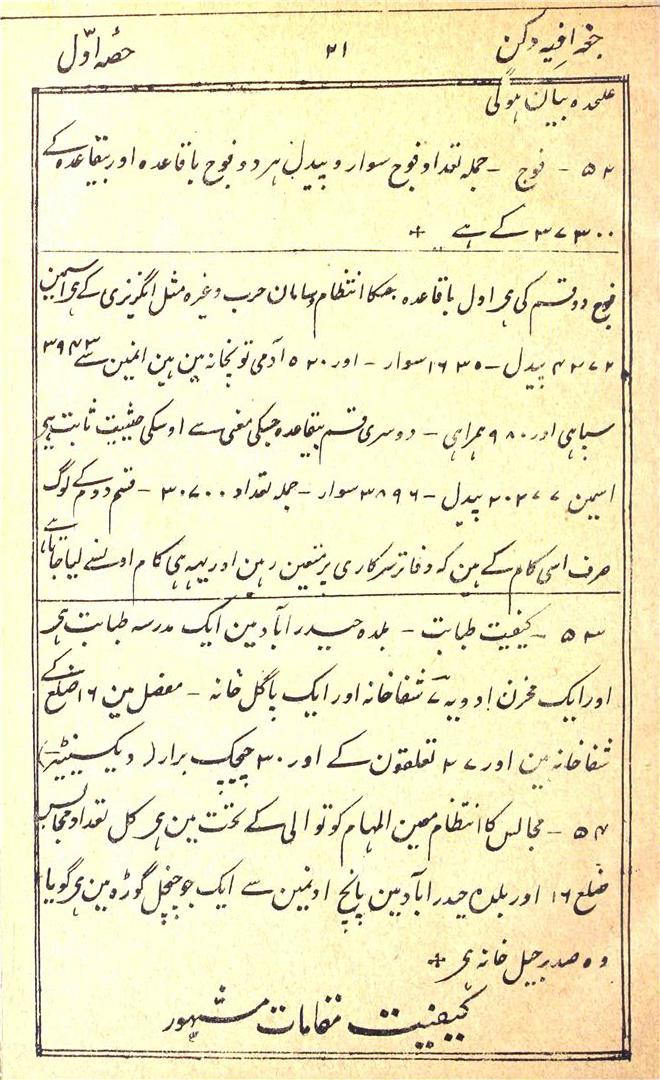 جغرافیہ دکن ۲۱ حصہ اوّل
علٰحدہ بیان ہوگی
۵۲ - فوج - جملہ تعداد فوج سوار و پیدل ہر دو فوج باقاعدہ اور بیقاعدہ کے
۳۷۳۰۰ کے ہے +
فوج دو قسم کی ہی اول باقاعدہ جسکا انتظام و سامان حرب وغیرہ مثل انگریزی کے ہی اسمین
۴۲۷۲ پیدل - ۱۶۳۵ سوار - اور ۵۲۰ آدمی توپخانہ مین ہین انمین سے ۳۹۴۳
سپاہی اور ۹۸۰ ہمراہی - دوسری قسم بیقاعدہ جسکی معنی سے اوسکی حیثیت ثابت ہی
اسمین ۲۰۲۷۷ پیدل - ۳۸۹۶ سوار - جملہ تعداد ۳۰۷۰۰ - قسم دوم کے لوگ
صرف اسی کام کے ہین کہ دفاتر سرکاری پر متعین رہین اور یہہ ہی کام اونسے لیا جاتا ہے
۵۳ - کیفیت طبابت - بلدہ حیدرآباد مین ایک مدرسہ طبابت ہی
اور ایک مخزن ادویہ ۷ شفاخانہ اور ایک پاگل خانہ - مفصل مین ۱۶ ضلع کے
شفاخانہ ہین اور ۲۷ تعلقون کے اور ۳۰ چیچک برار (ویکسینیٹر)
۵۴ - مجالس کا انتظام معین المہام کوتوالی کے تحت مین ہی کل تعداد مجالس
ضلع ۱۶ اور بلدہ حیدرآباد مین پانچ اونمین سے ایک جو چنچل گوڑہ مین ہی گویا
وہ صدر جیل خانہ ہی +
کیفیت مقامات مشہور